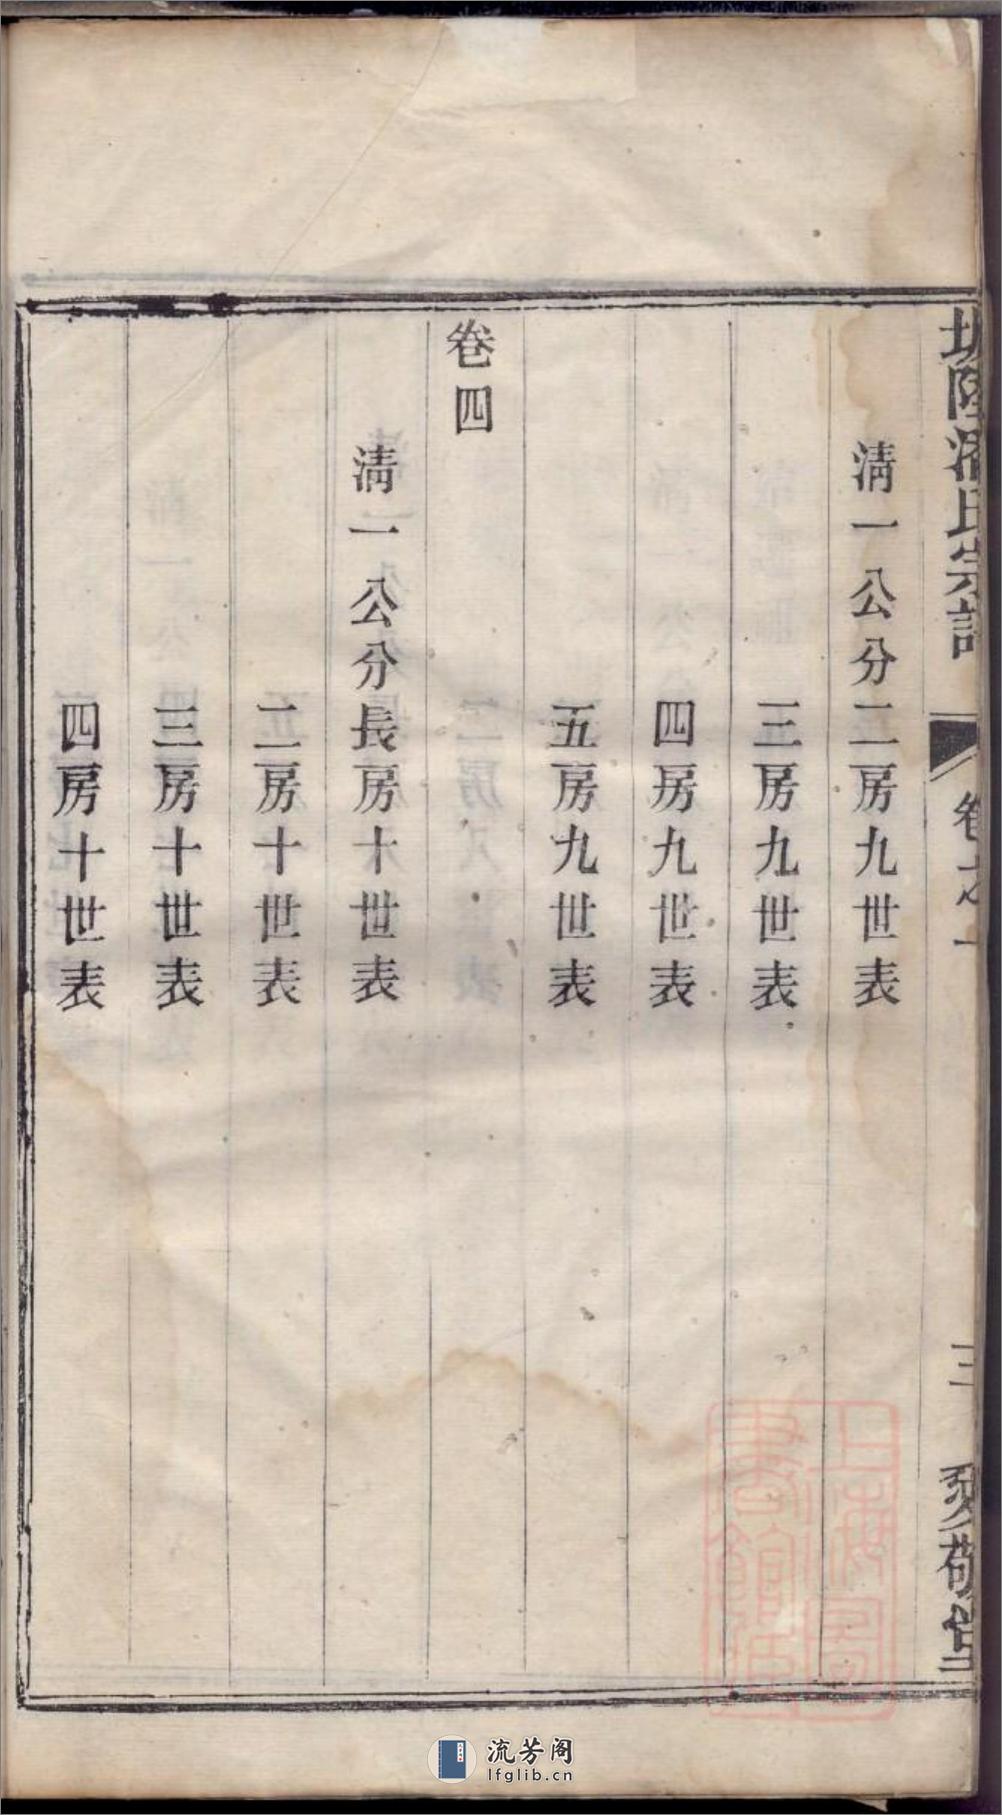 宗譜
卷之一
三
敬堂
清一公分二房九世表
三房九世表
四房九世表
五房九世表
卷四
清一公分長房十世表
二房十世表
三房十世表
四房十世表
上海圖書館藏
流芳阁
lfglib.cn